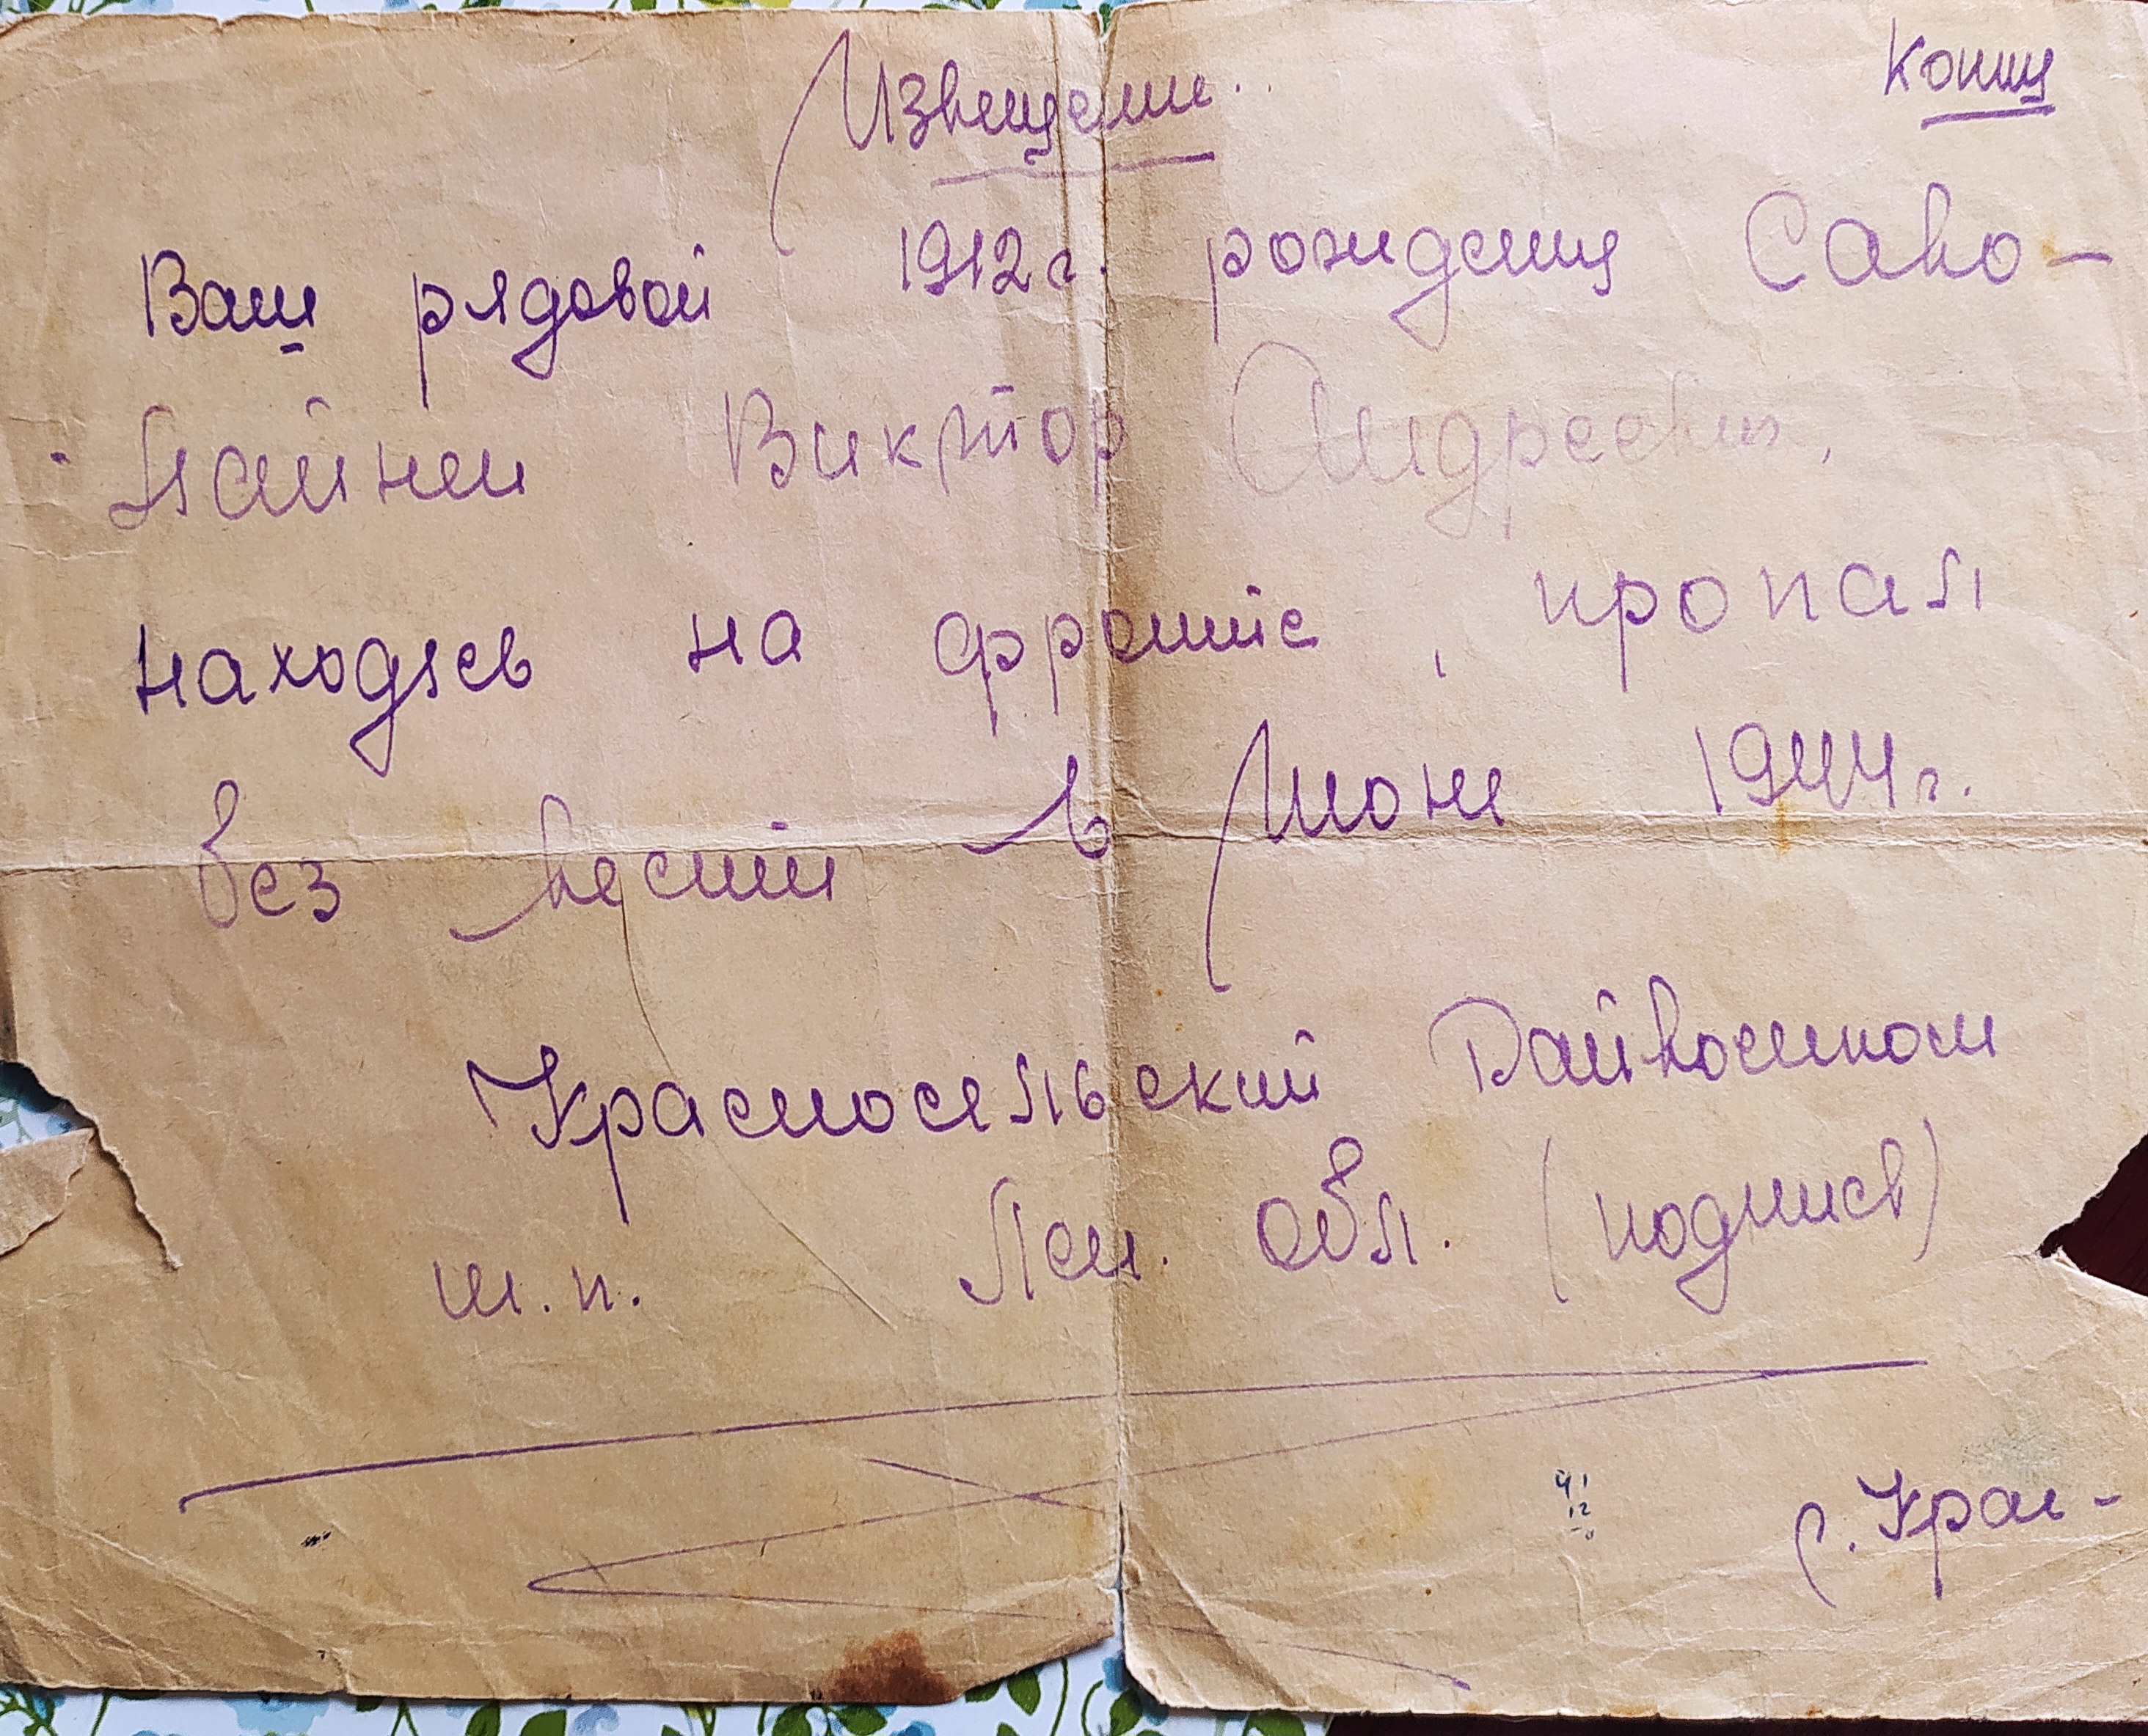 Копия
Извещение
Ваш рядовой 1912 г. рождения Саво-
лайнен Виктор Андреевич,
находясь на фронте, пропал
без вести в Июне 1944 г.
Красносельский Райвоенком
м.п. Лен. обл. (подпись)
41
12
с. Крас-